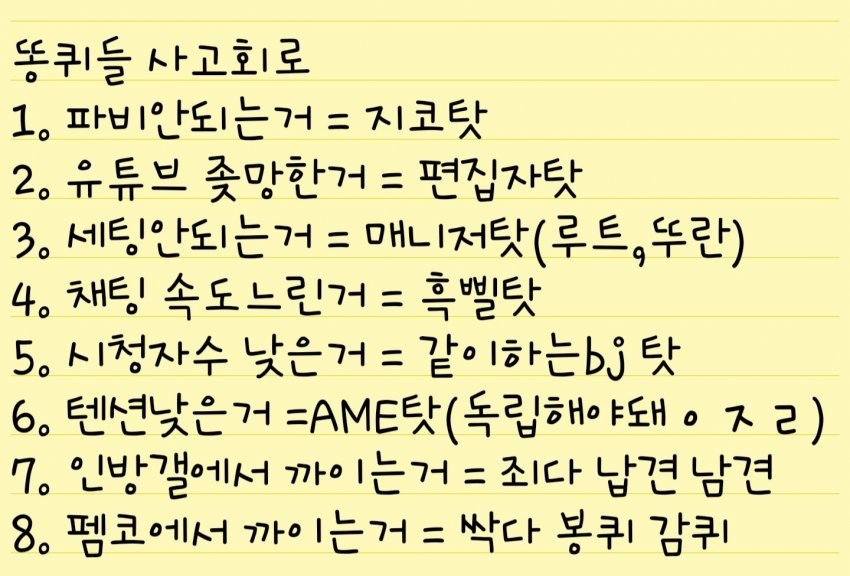 똥퀴들 사고회로
1. 파비안되는거 = 지코탓
2. 유튜브 좆망한거 = 편집자탓
3. 세팅안되는거 = 매니저탓(루트,뚜란)
4. 채팅 속도느린거 = 흑삘탓
5. 시청자수 낮은거 = 같이하는bj 탓
6. 텐션낮은거 =AME탓(독립해야돼 ㅇㅈㄹ)
7. 인방갤에서 까이는거 = 죄다 납견 남견
8. 펨코에서 까이는거 = 싹다 봉퀴 감퀴